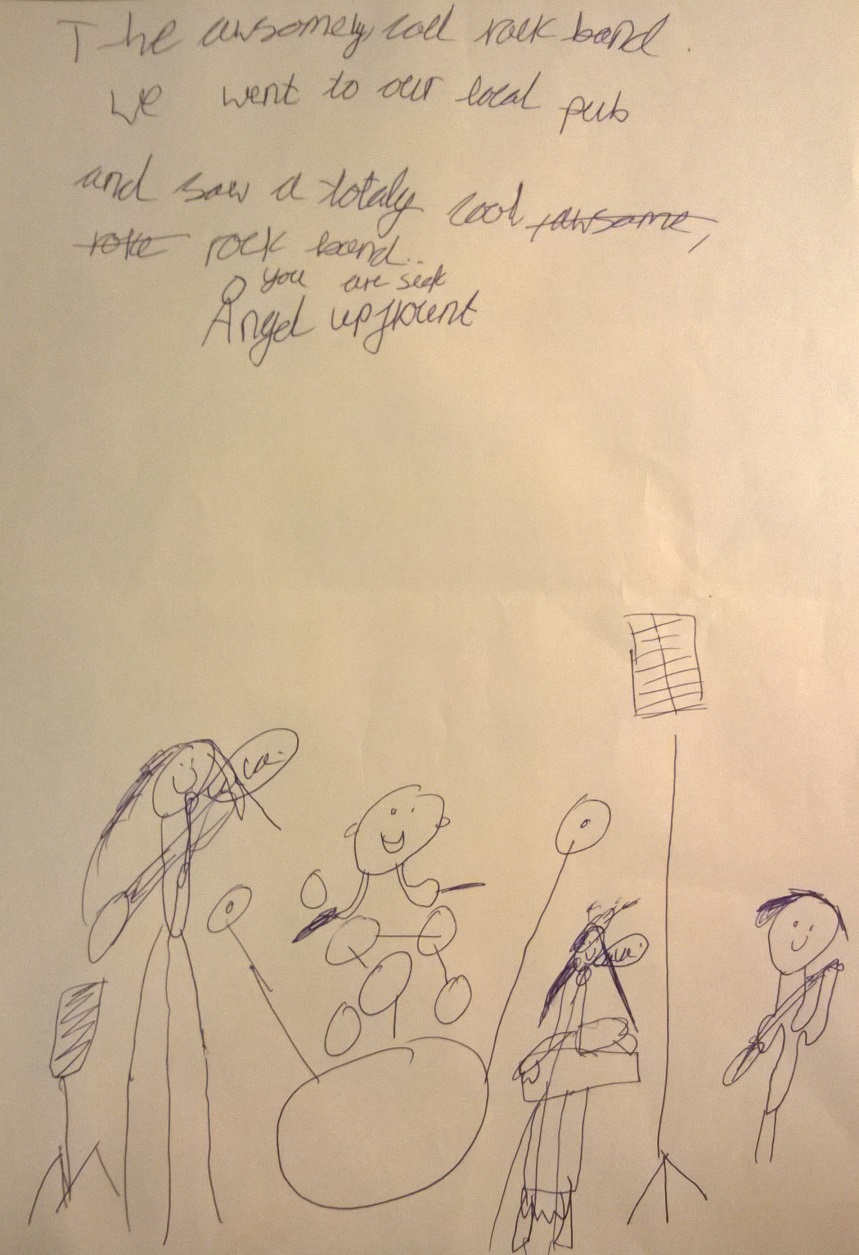 The awsomely cool rock band.
we went to our local pub
and saw a totaly cool, awsome,
roke rock band..
you are seek
Angel upfrount
la la.
la la.